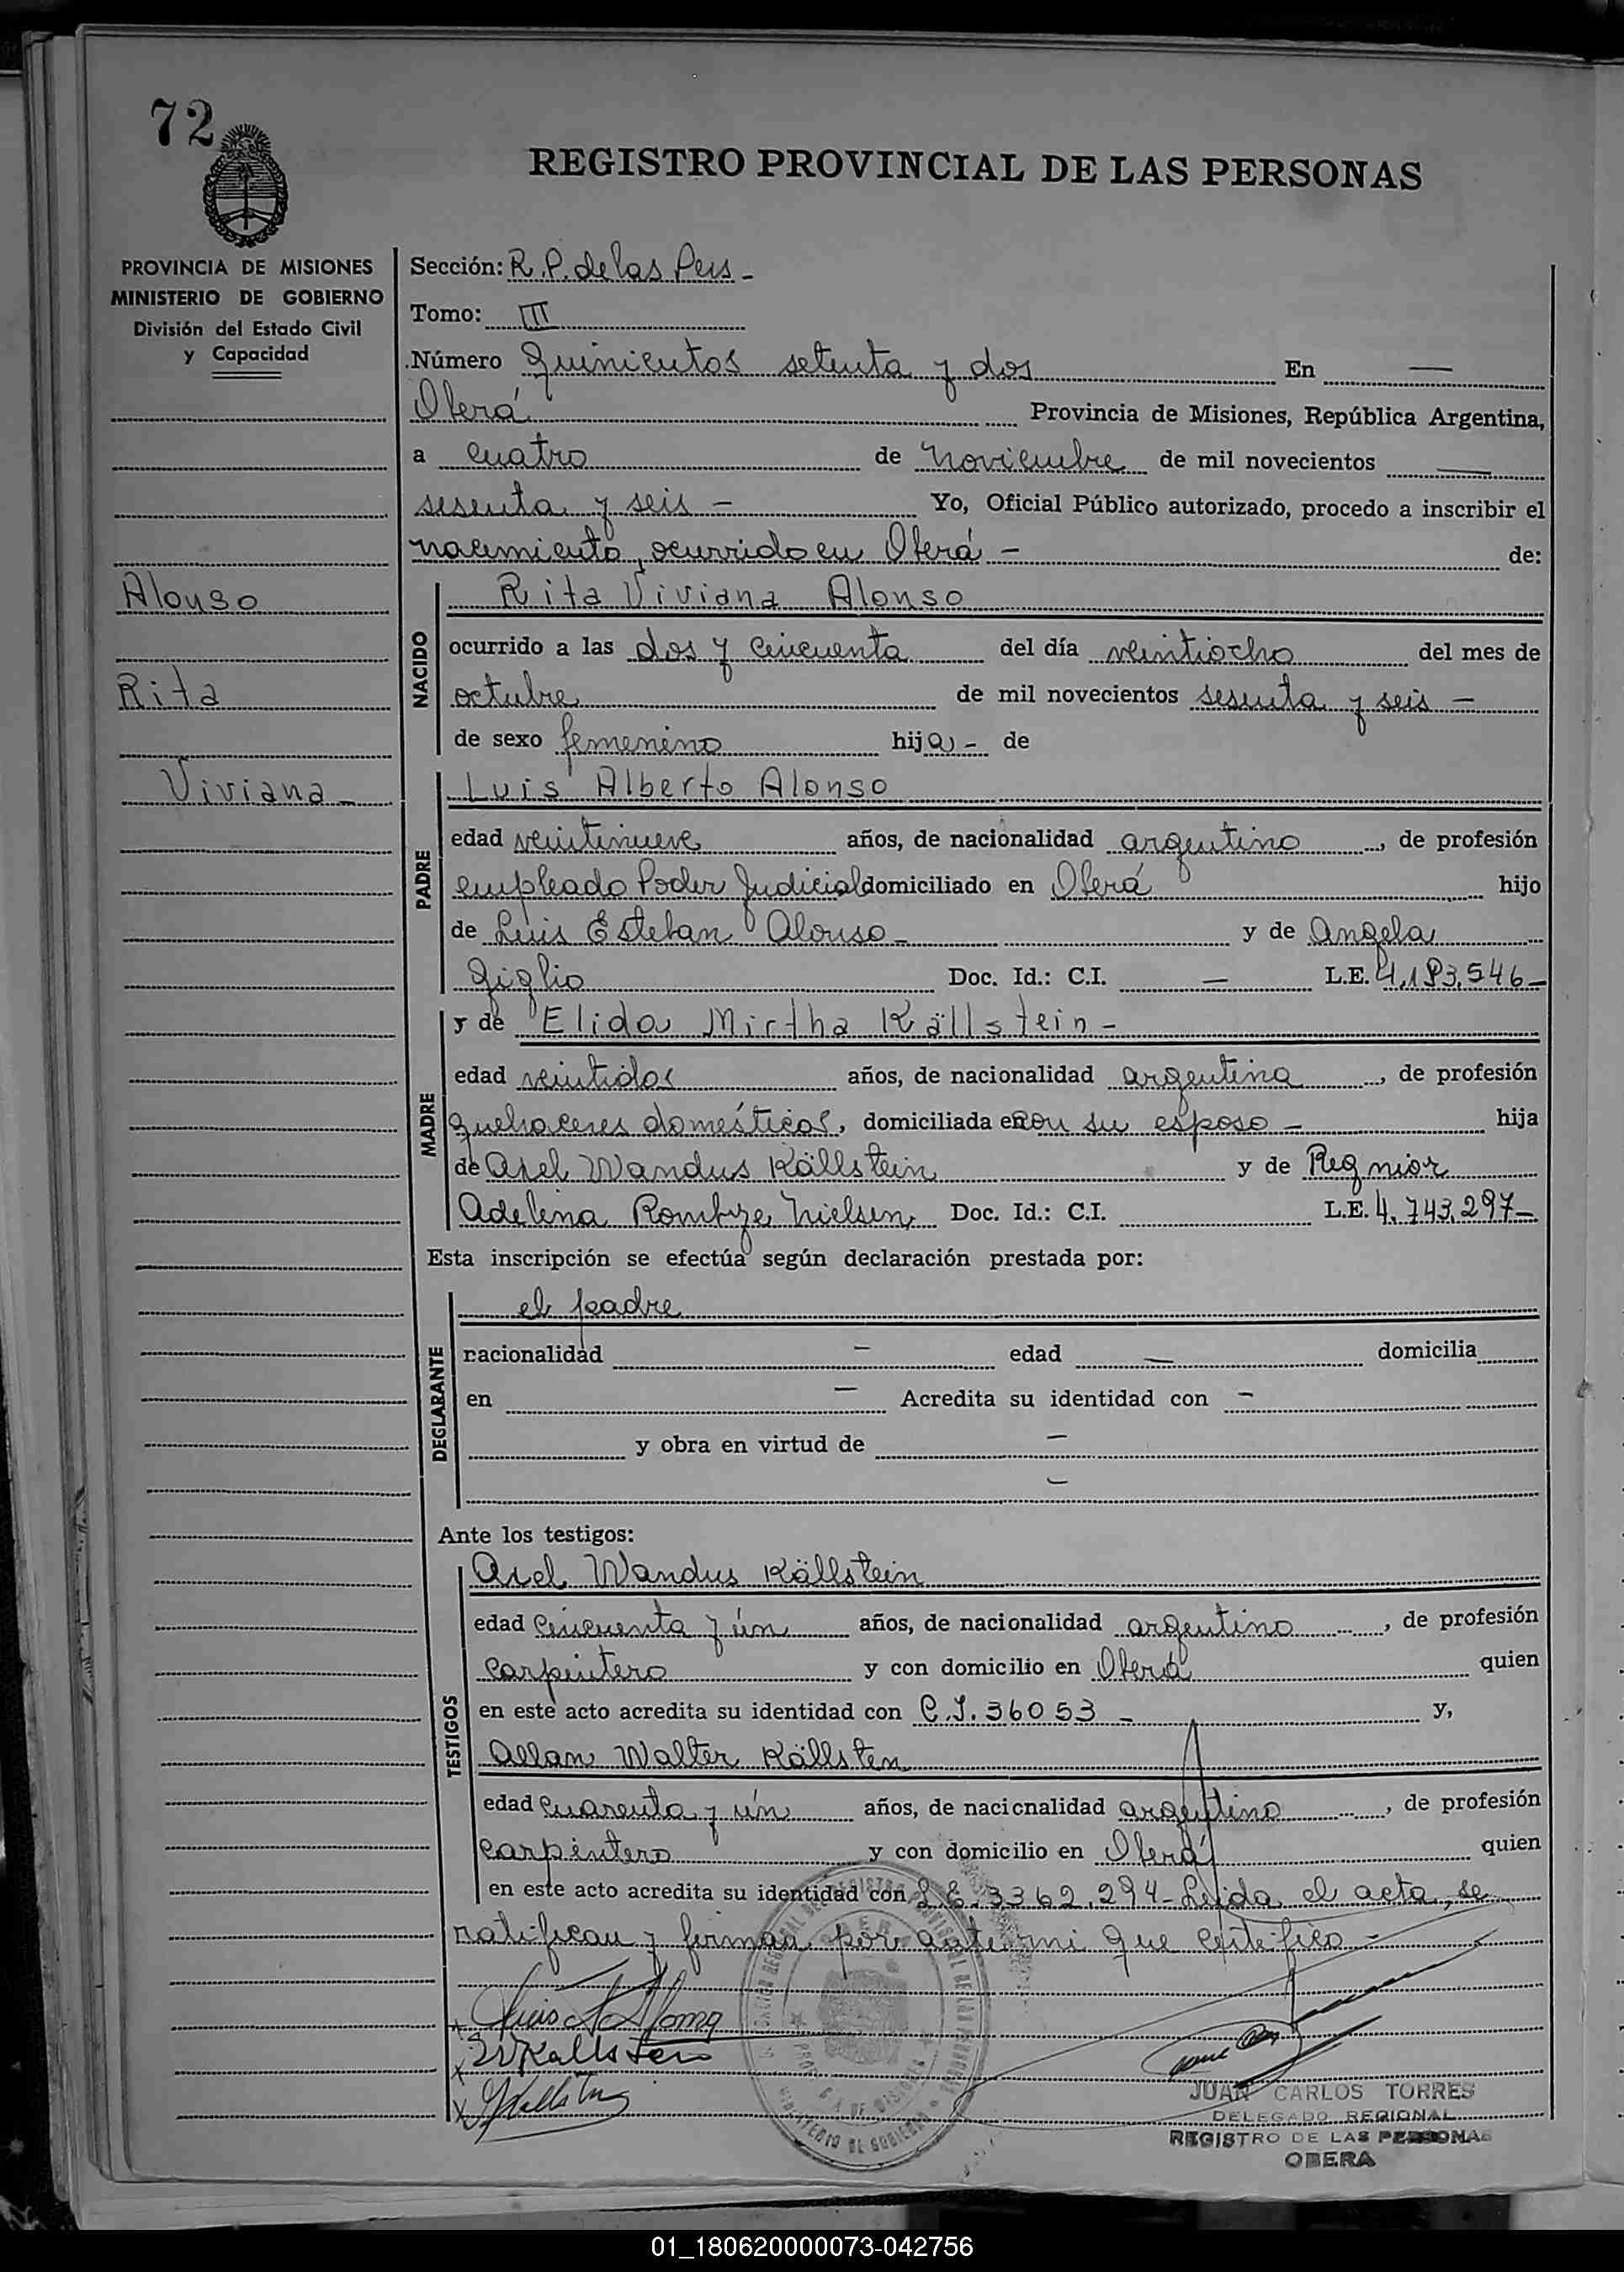 72
REGISTRO PROVINCIAL DE LAS PERSONAS
PROVINCIA DE MISIONES
MINISTERIO DE GOBIERNO
División del Estado Civil
y Capacidad
Alonso
Rita
Viviana -
Sección: R. P. de las Pers -
Tomo: III
Número quinientos setenta y dos En —
Oberá Provincia de Misiones, República Argentina,
a cuatro de noviembre de mil novecientos —
sesenta y seis - Yo, Oficial Público autorizado, procedo a inscribir el
nacimiento, ocurrido en Oberá - de:
NACIDO
Rita Viviana Alonso
ocurrido a las dos y cincuenta del día veintiocho del mes de
octubre de mil novecientos sesenta y seis -
de sexo femenino hija - de
PADRE
Luis Alberto Alonso
edad veintinueve años, de nacionalidad argentino, de profesión
empleado Poder Judicial domiciliado en Oberá hijo
de Luis Esteban Alonso - y de Angela
Giglio Doc. Id.: C.I. — L.E. 4,193,546 -
MADRE
y de Elida Mirtha Källstein -
edad veintidos años, de nacionalidad argentina, de profesión
quehaceres domésticos, domiciliada en con su esposo - hija
de Axel Wandus Källstein y de Regnior
Adelina Nielsen Doc. Id.: C.I. L.E. 4.743.297 -
Esta inscripción se efectúa según declaración prestada por:
DECLARANTE
el padre
nacionalidad - edad — domicilia
en — Acredita su identidad con -
y obra en virtud de —
-
Ante los testigos:
TESTIGOS
Axel Wandus Källstein
edad cincuenta y ún años, de nacionalidad argentino, de profesión
carpintero y con domicilio en Oberá quien
en este acto acredita su identidad con C.I. 36053 - y,
Allan Walter Källsten
edad cuarenta y ún años, de nacionalidad argentino, de profesión
carpintero y con domicilio en Oberá quien
en este acto acredita su identidad con L.E. 3362.294 - Leída el acta, se
ratifican y firman por ante mi que certifico -
JUAN CARLOS TORRES
DELEGADO REGIONAL
REGISTRO DE LAS PERSONAS
OBERA
01_180620000073-042756